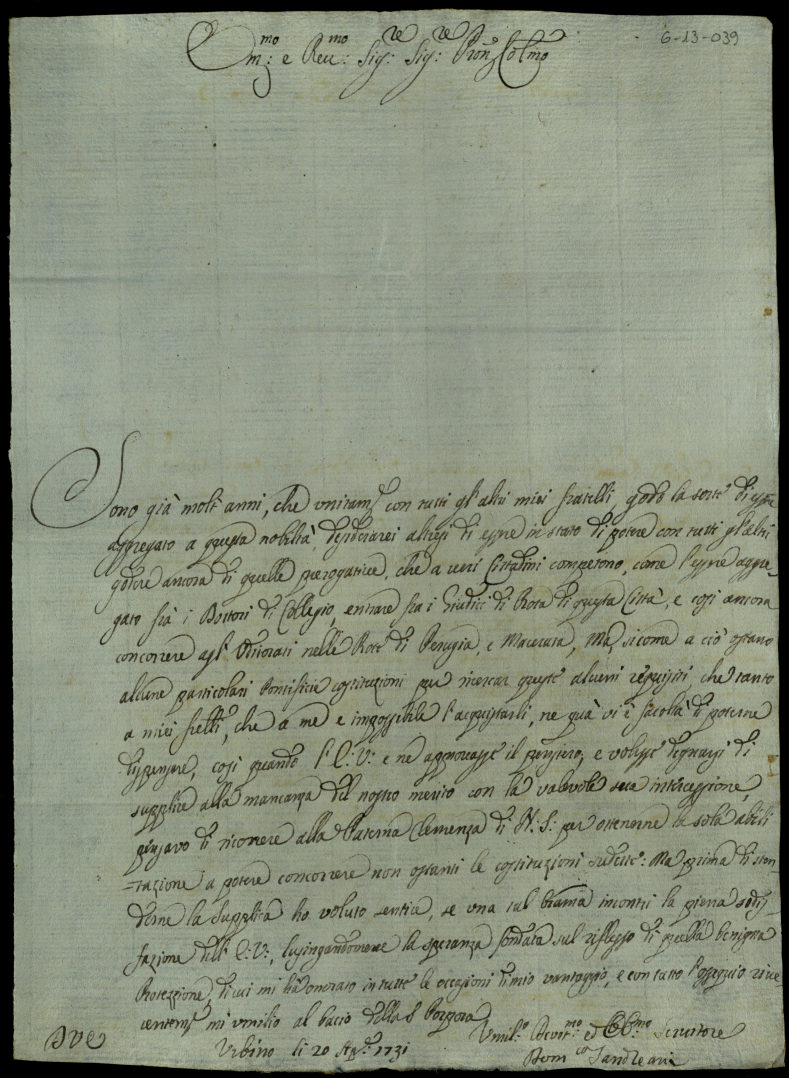 6-13-039
Em:mo e Reu:mo Sig:re Sig:re Pron Colmo
Sono già molt'anni, che unitamte con tutti gl'altri miei fratelli godo la sorte di essere
aggregato a questa nobiltà, desiderarei altresi di essere in stato di potere con tutti gl'altri
godere ancora di quelle prerogative, che a veri Cittadini competono, come l'essere aggre-
gato frà i Dottori di Collegio, entrare fra i Giudici di Rota di questa Città, e cosi ancora
concorrere agl' Uditorati nelle Rote di Perugia, e Macerata, Ma, sicome a ciò ostano
alcune particolari Pontificie costituzioni per ricercar queste alcuni requisiti, che tanto
a miei frelli, che a me e impossibile l'acquistarli, ne quà vi è facoltà di poterne
dispensare, cosi quando l'E:V: e ne approvasse il pensiero, e volesse degnarsi di
supplire alla mancanza del nostro merito con la valevole sua intercessione,
pensavo di ricorrere alla Paterna Clemenza di N:S: per ottenerne la sola abili
=tazione a potere concorrere non ostanti le costituzioni sudette: Ma prima di sten-
derne la supplica ho voluto sentir, se una tal brama incontri la piena sodis-
fazione dell'E:V:, lusingandomene la speranza fondata sul riflesso di quella benigna
Protezzione, di cui mi hà onorato in tutte le occasioni di mio vantaggio, e con tutto l'ossequio rive
rentemte mi umilio al bacio della S Porpora
Urbino li 20 Ap:le 1731
Umil:o Devot:mo ed Obb:mo Servitore
Dom:co